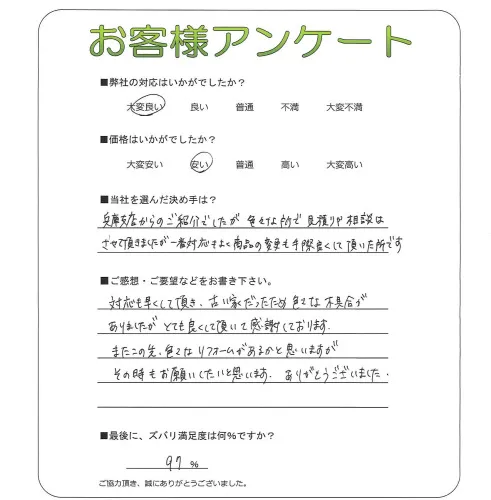 お客様アンケート
■弊社の対応はいかがでしたか?
大変良い 良い 普通 不満 大変不満
■価格はいかがでしたか?
大変安い 安い 普通 高い 大変高い
■当社を選んだ決め手は?
兵庫支店からのご紹介でしたが 色々な所で見積りや相談は
させて頂きましたが一番対応もよく商品の変更も手際良くして頂いた所です
■ご感想・ご要望などをお書き下さい。
対応も早くして頂き、古い家だったため色々な不具合が
ありましたがとても良くして頂いて感謝しております。
またこの先、色々なリフォームがあるかと思いますが
その時もお願いしたいと思います。ありがとうございました。
■最後に、ズバリ満足度は何%ですか?
97 %
ご協力頂き、誠にありがとうございました。